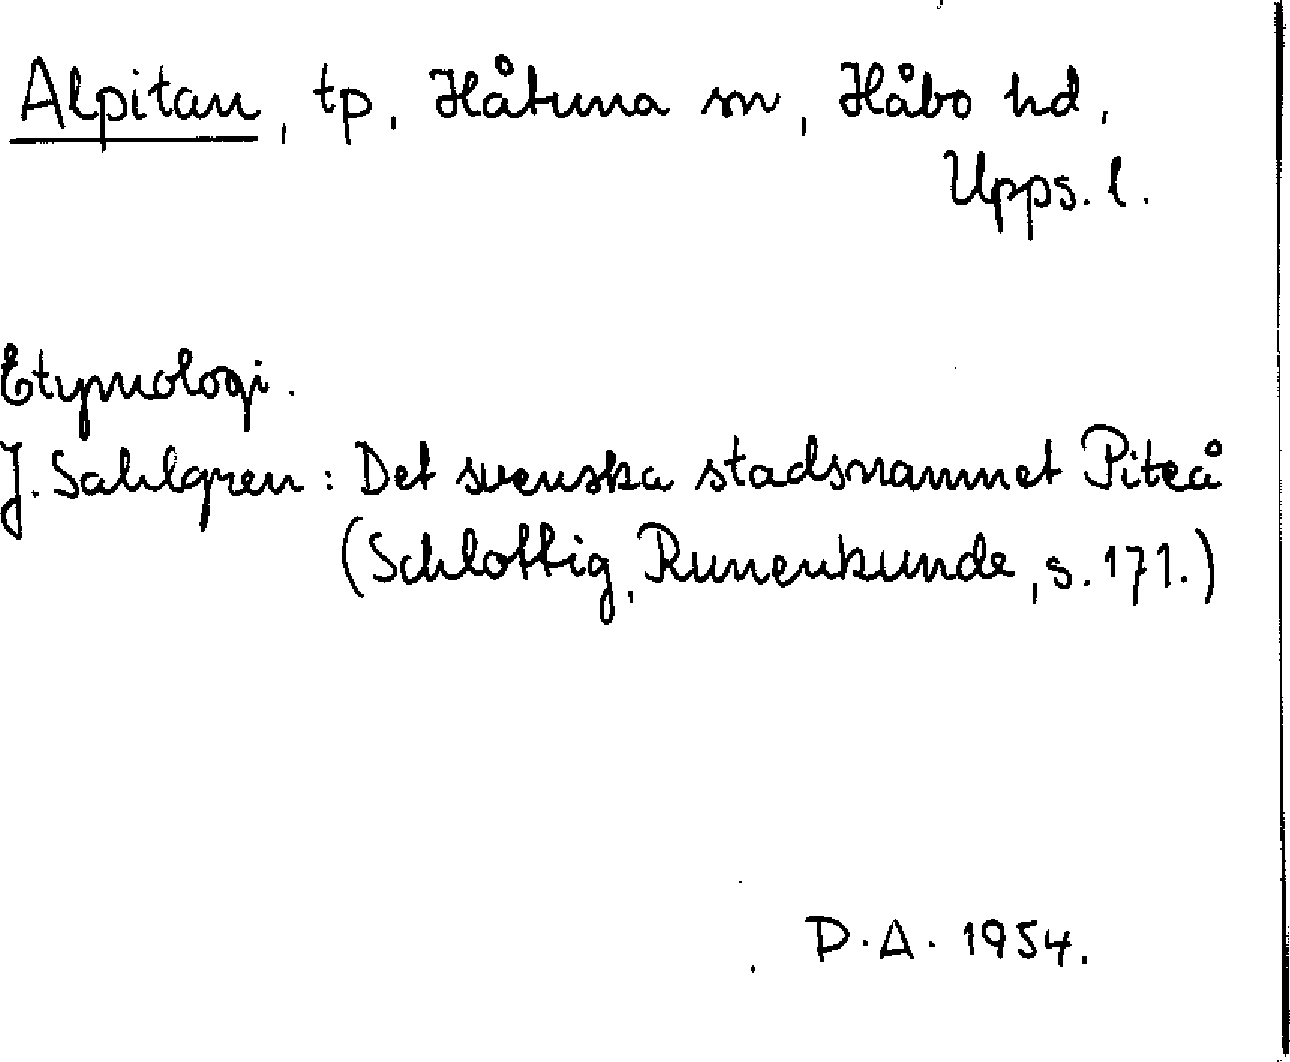 Alpitan, tp, Håtuna sn, Håbo hd,
Upps. l.
Etymologi.
J. Sahlgren: Det svenska stadsnamnet Piteå
(Schlottig, Runenkunde, s. 171.)
D.A. 1954.